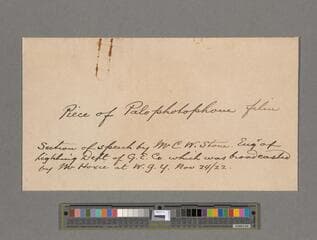 Piece of Palophotophone film
Section of speech by Mr C. W. Stone Engr of
Lighting Dept of G. E. Co which was broadcasted
by Mr Hoxie at W. G. Y. Nov 24/22.